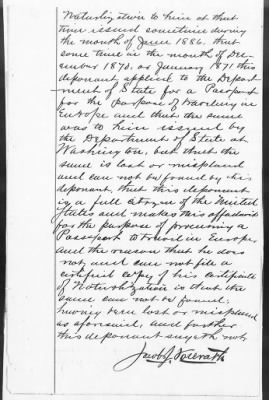 Naturalization to him at that
time issued sometime during
the month of June 1886. that
some time in the month of De-
cember 1870. or January 1871 this
deponant applied to the Depart-
ment of State for a Passport
for the purpose of traveling in
Europe and that the same
was to him issued by
the Department of State at
Washington, but that the
same is lost or misplaced
and can not be found by this
deponant, that this deponant
is a full citizen of the United
States and makes this affadavid
for the purpose of procuring a
Passport to travel in Europe
and the reason that he does
not, and can not file a
certified copy of his certificate
of Naturalization is that the
same can not be found;
having been lost or misplaced
as aforesaid, and further
this deponant sayeth not
Jacob J. Vollrath